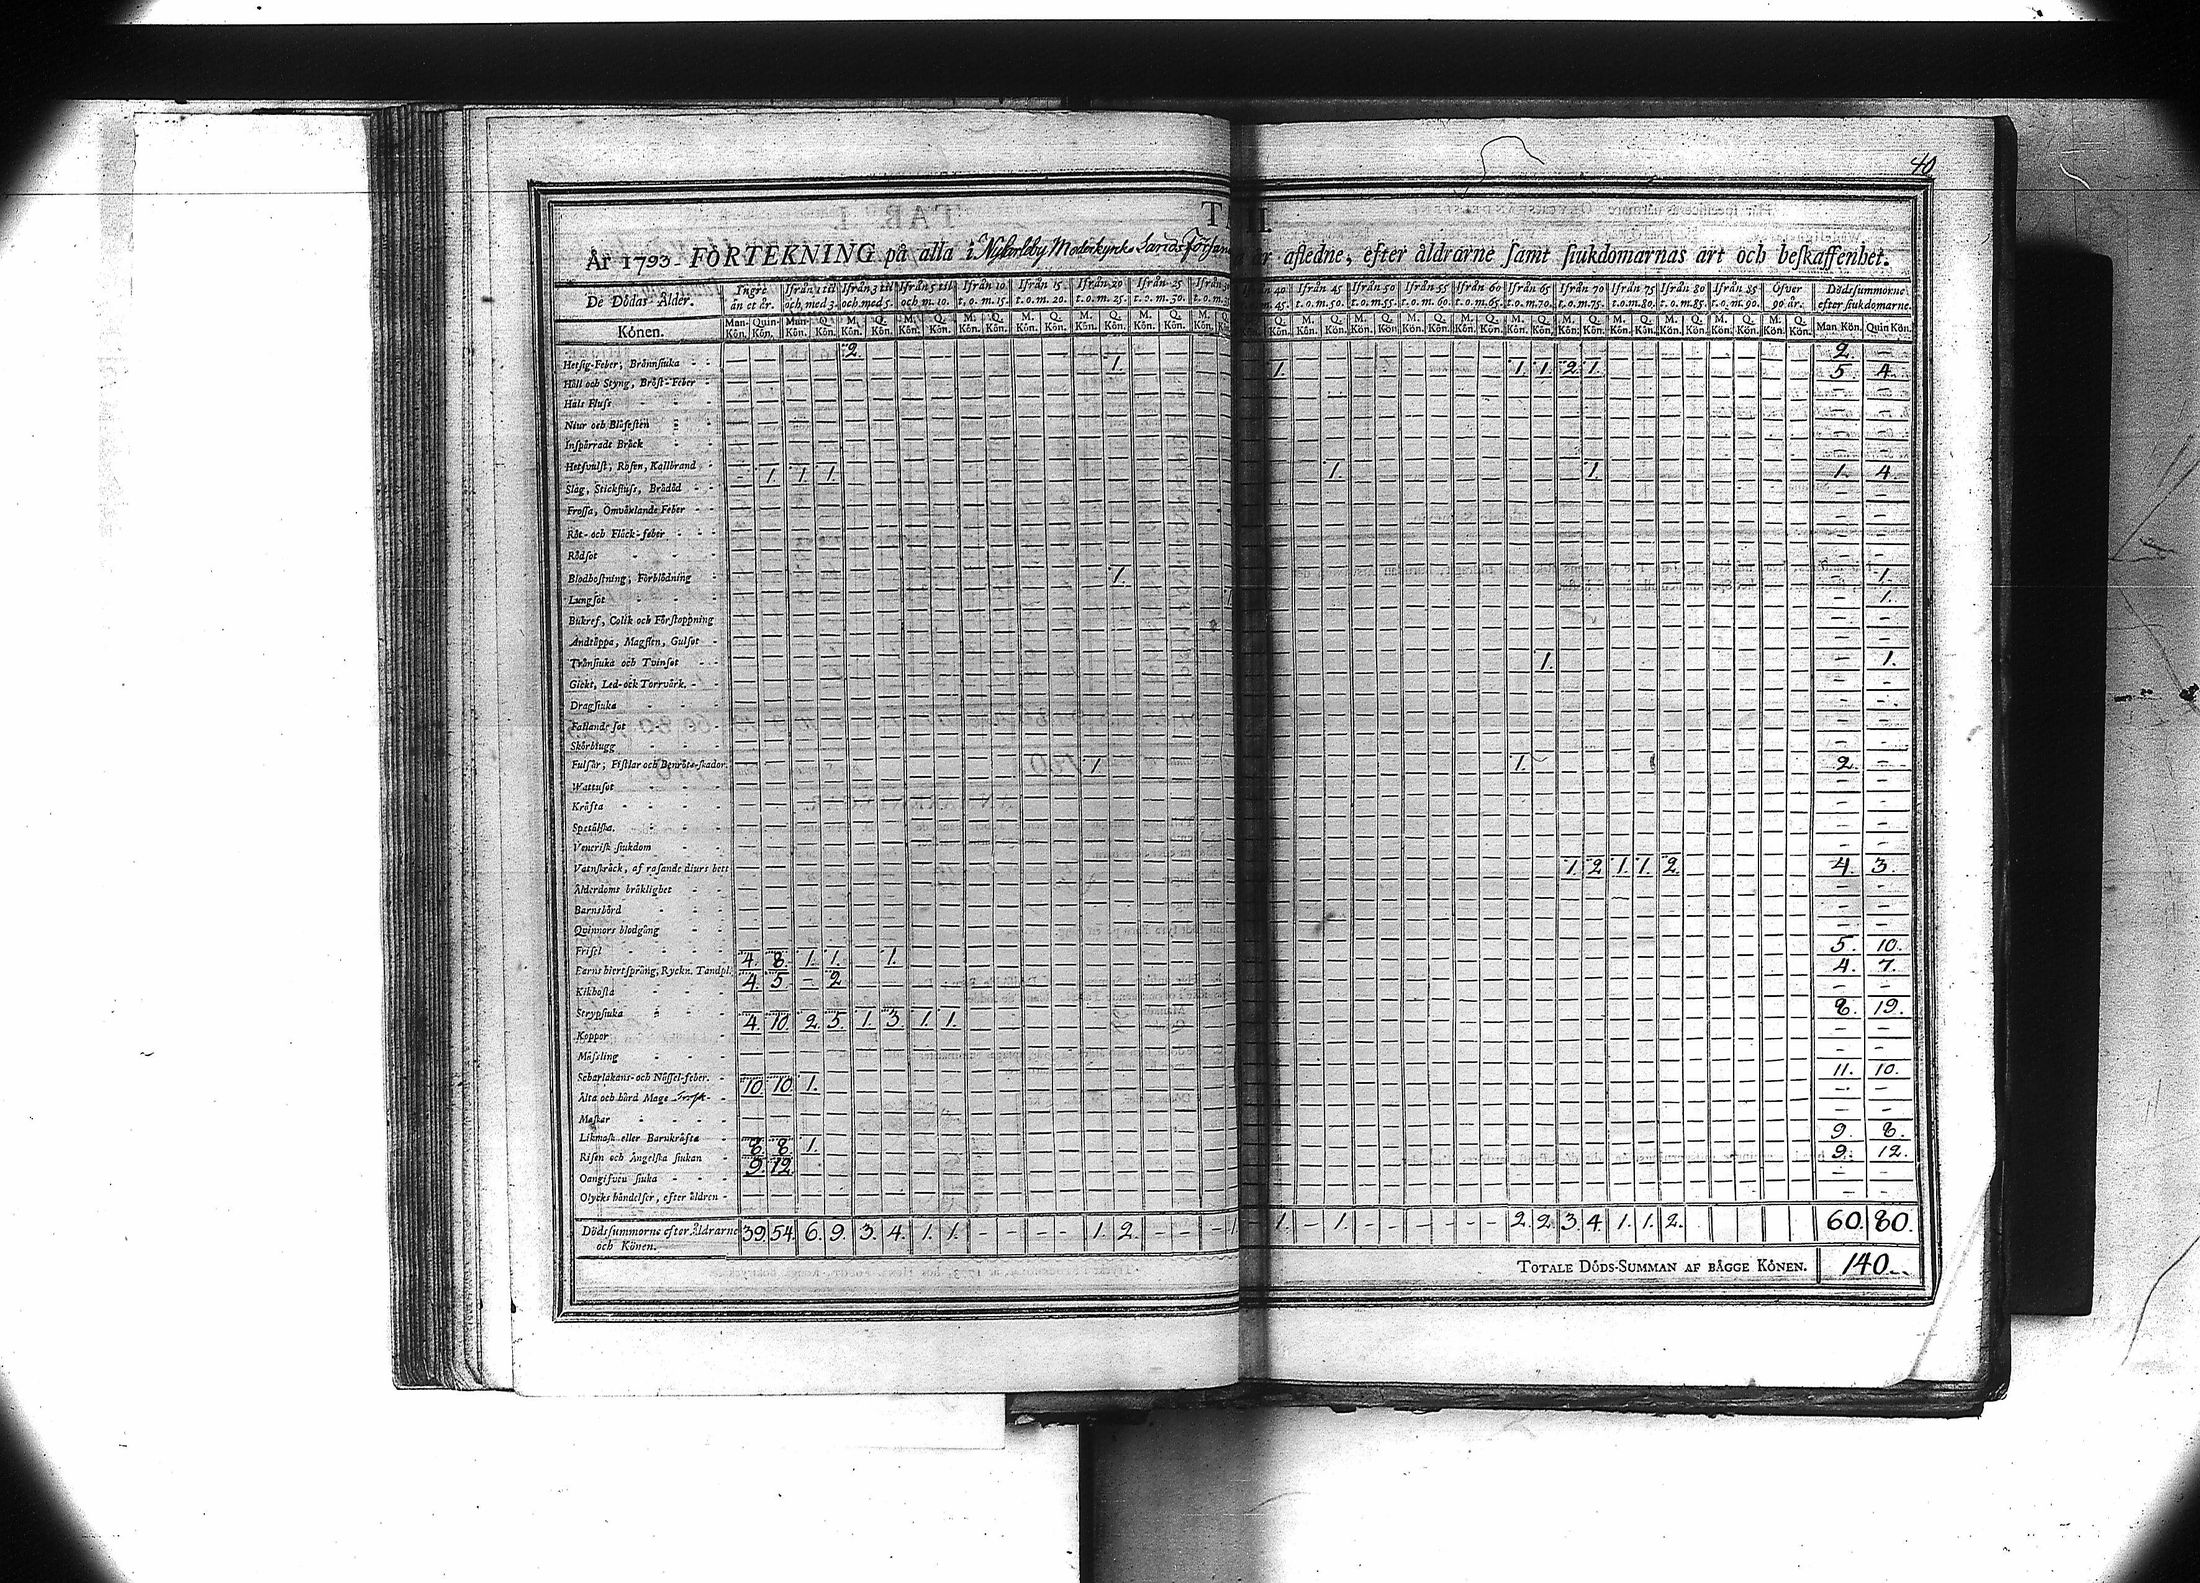 40
TAB. I.
År 1793 FÖRTEKNING på alla i Nykarleby Moderkyrko Lands Församl afledne, efter åldrarne samt siukdomarnas art och beskaffenhet.
De Dödas Ålder. Ingre än et år. Ifrån 1 til och med 3. Ifrån 3 til och med 5. Ifrån 5 til och m. 10. Ifrån 10 t. o. m. 15. Ifrån 15 t. o. m. 20. Ifrån 20 t. o. m. 25. Ifrån 25 t. o. m. 30. Ifrån 40 m. 45. Ifrån 45 t. o. m. 50. Ifrån 50 t. o. m. 55. Ifrån 55 t. o. m. 60. Ifrån 60 t. o. m. 65. Ifrån 65 t. o. m. 70. Ifrån 70 t. o. m. 75. Ifrån 75 t. o. m. 80. Ifrån 80 t. o. m. 85. Ifrån 85 t. o. m. 90. Öfver 90. år. Dödssummorne efter siukdomarne.
Könen. Man-Kön. Quin-Kön. Man-Kön. Q. Kön. M. Kön. Q. Kön. M. Kön. Q. Kön. M. Kön. Q. Kön. M. Kön. Q. Kön. M. Kön. Q. Kön. M. Kön. Q. Kön. Man Kön. Quin Kön.
2 2 –
Hetsig-Feber, Brännsiuka 1. 1. 1 1 2 1. 5 4
Håll och Styng, Bröst-Feber
Hals Fluss
Niur och Blåsesten
Inspärradt Bråck
Hetsvulst, Rosen, Kallbrand – 1 1 1. 1. 1. 1 4
Slag, Stickfluss, Brådöd
Frossa, Omväxlande Feber
Röt- och Fläck-feber
Rödsot
Blodhostning, Förblödning 1. – 1.
Lungsot 1 – 1.
Bukref, Colik och Förstoppning
Andtäppa, Magsten, Gulsot
Trånsiuka och Tvinsot 1. – 1.
Gickt, Led- och Torrvärk.
Dragsiuka
Fallande sot
Skörbiugg
Fulsår, Fistlar och Benröts-skador. 1 1. 2 –
Wattusot
Kräfta
Spetälska.
Venerisk siukdom
Vatnskräck, af rasande diurs bett 1. 2 1. 1. 2 4. 3.
Ålderdoms bräklighet
Barnsbörd
Qvinnors blodgång
Frisel 4. 8. 1. 1. – 1. 5. 10.
Barns hiertspräng, Ryckn. Tandpl. 4 5 – 2 4. 7.
Kikhosta
Strypsiuka 4. 10. 2. 5. 1. 3. 1. 1. 8. 19.
Koppor
Mässling
Scharlakans- och Nässel-feber. 10 10 1. 11. 10.
Älta och hård Mage Torsk
Maskar
Likmask eller Barnkräfta 8 8 1. 9. 8.
Risen och Ängelska siukan 9 12 9. 12.
Oangifven siuka
Olycks händelser, efter åldren
Dödssummorne efter Åldrarne och Könen. 39. 54. 6. 9. 3. 4. 1. 1. – – – – 1. 2. – – – 1. – 1. – 1. – – – – – – 2. 2. 3. 4. 1. 1. 2. 60. 80.
TOTALE DÖDS-SUMMAN AF BÅGGE KÖNEN. 140.